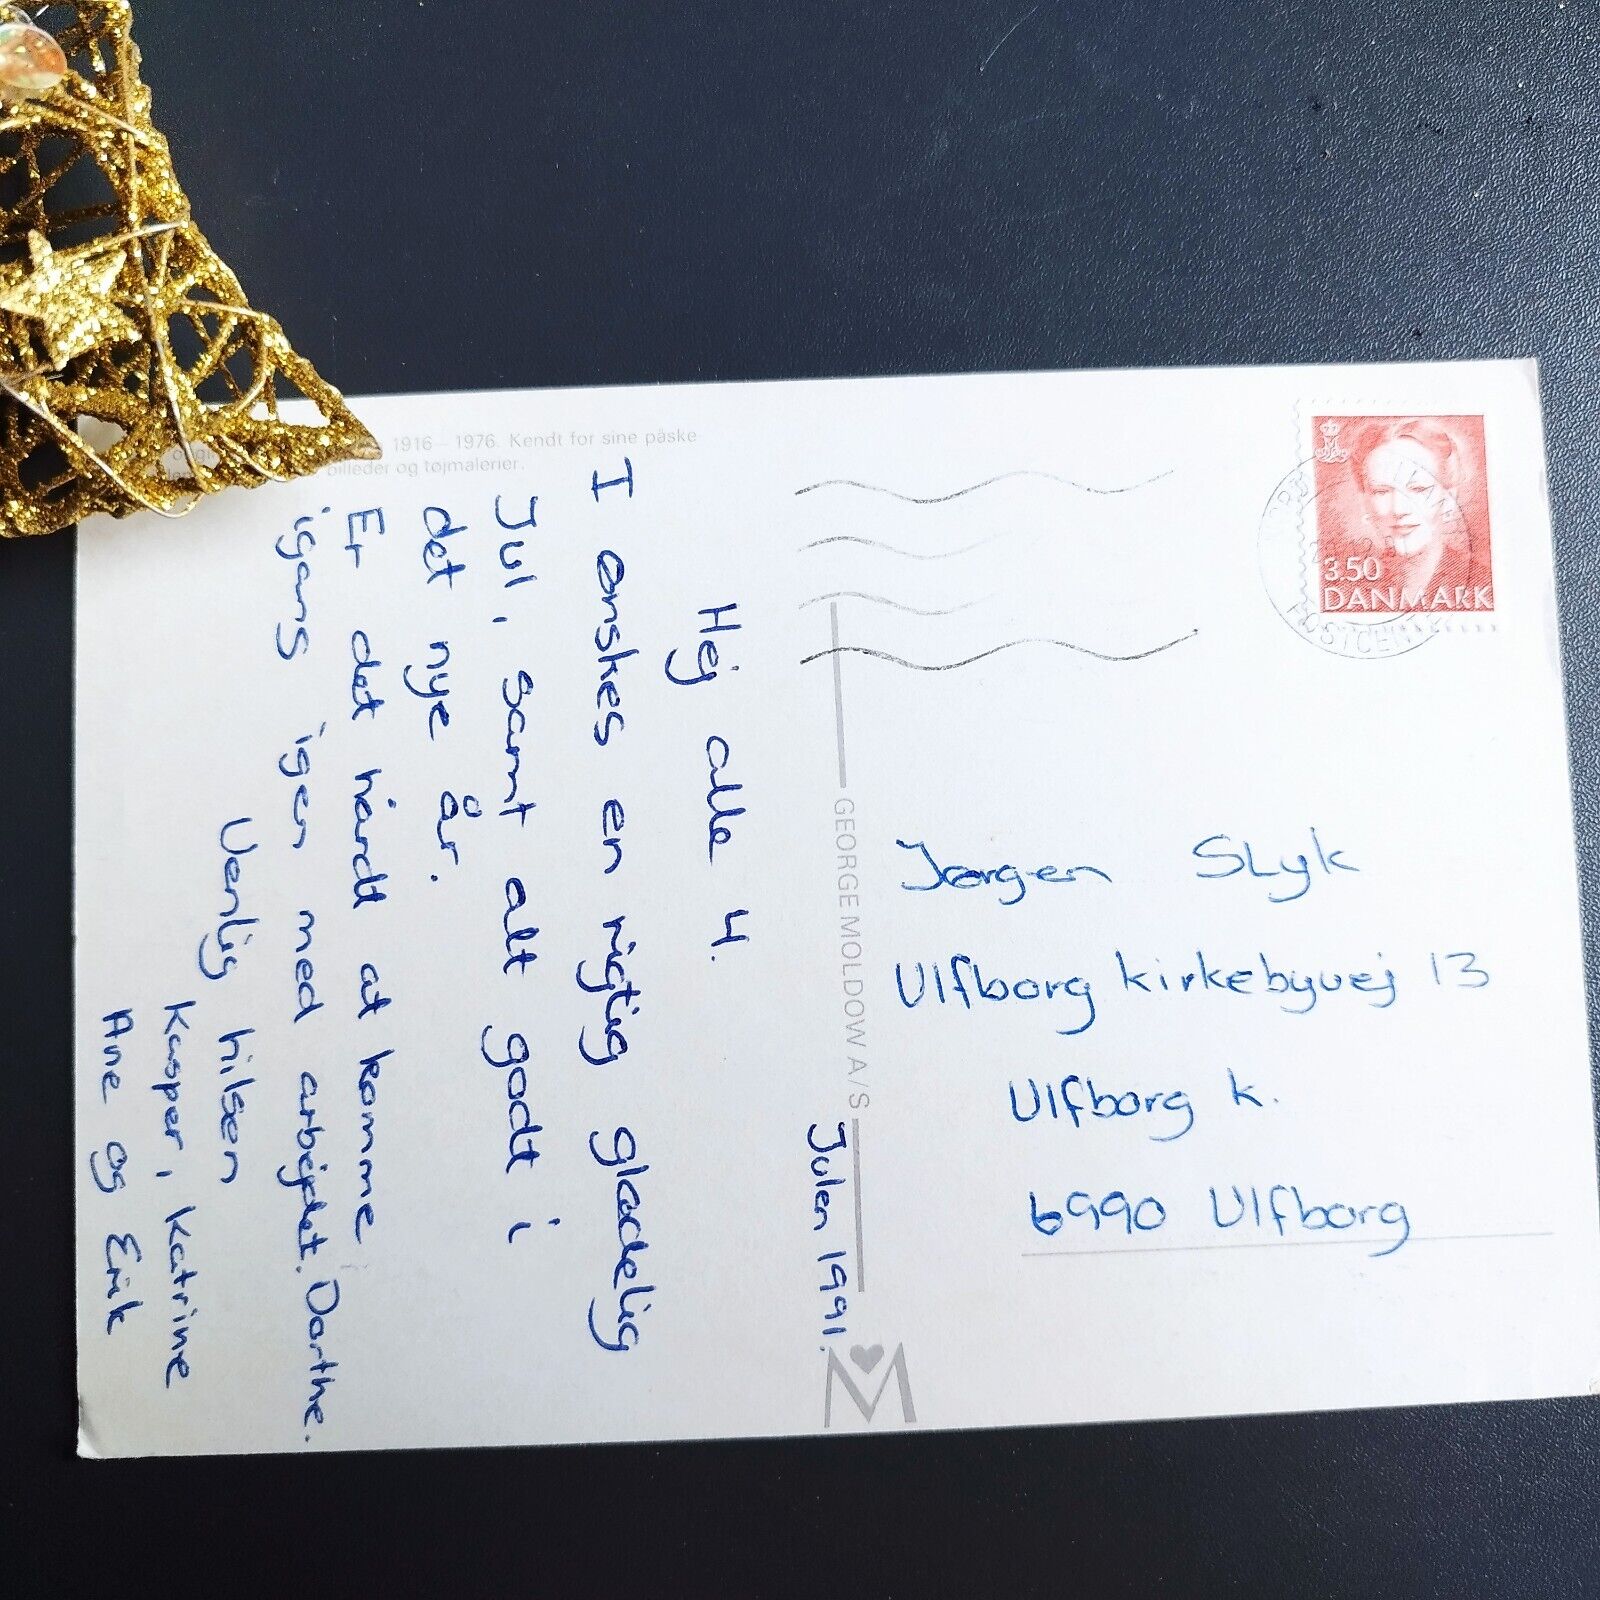 1916 – 1976. Kendt for sine påske
billeder og tøjmalerier.
Julen 1991.
Hej alle 4.
I ønskes en rigtig glædelig
Jul, samt alt godt i
det nye år.
Er det hårdt at komme
igang igen med arbejdet. Dorthe.
Venlig hilsen
Kasper, Katrine
Ane og Erik
GEORGE MOLDOW A/S
M
3.50
DANMARK
Jørgen Slyk
Ulfborg Kirkebyvej 13
Ulfborg K.
6990 Ulfborg